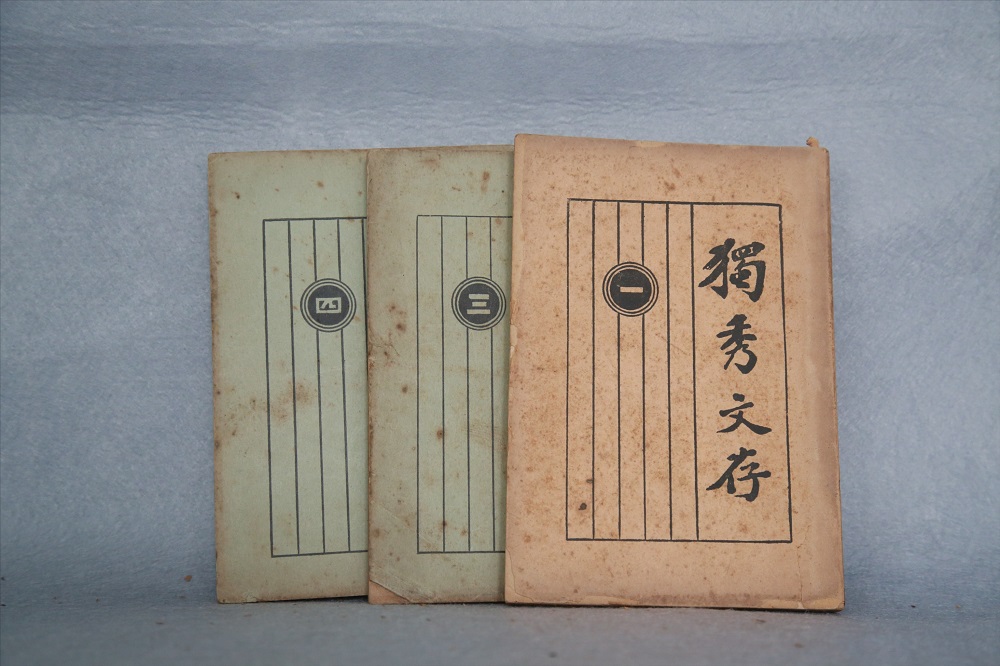 獨秀文存
一
三
四